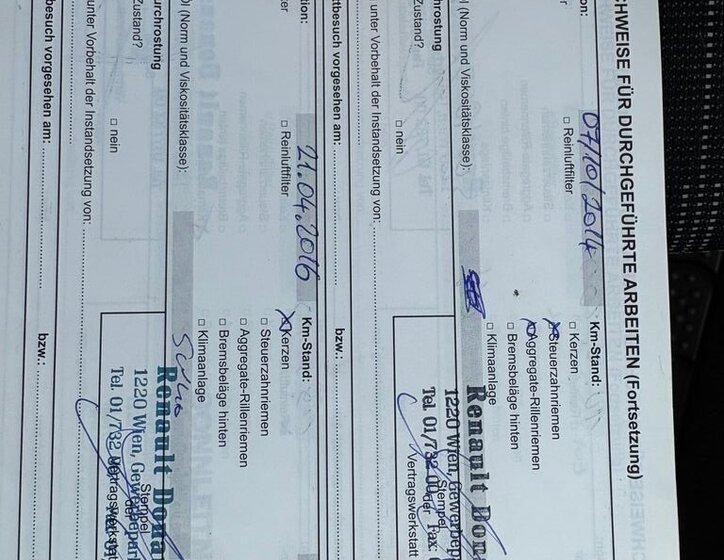 CHWEISE FÜR DURCHGEFÜHRTE ARBEITEN (Fortsetzung)
07/10/2014
Km-Stand:
□ Reinluftfilter
□ Kerzen
Steuerzahnriemen
Aggregate-Rillenriemen
□ Bremsbeläge hinten
□ Klimaanlage
(Norm und Viskositätsklasse):
urchrostung
Zustand?
□ nein
unter Vorbehalt der Instandsetzung von:
ttbesuch vorgesehen am:
bzw.:
Renault Don
1220 Wien, Gewerbep
Tel. 01/732 00
Fax:
Stempel
der
Vertragswerkstatt
tion:
21.04.2016
Km-Stand:
□ Reinluftfilter
Kerzen
□ Steuerzahnriemen
□ Aggregate-Rillenriemen
□ Bremsbeläge hinten
□ Klimaanlage
Öl (Norm und Viskositätsklasse):
urchrostung
Zustand?
□ nein
unter Vorbehalt der Instandsetzung von:
tbesuch vorgesehen am:
bzw.:
Renault Dona
1220 Wien, Gewerbepar
Tel. 01/732
Stempel
der
Vertragswerkstat